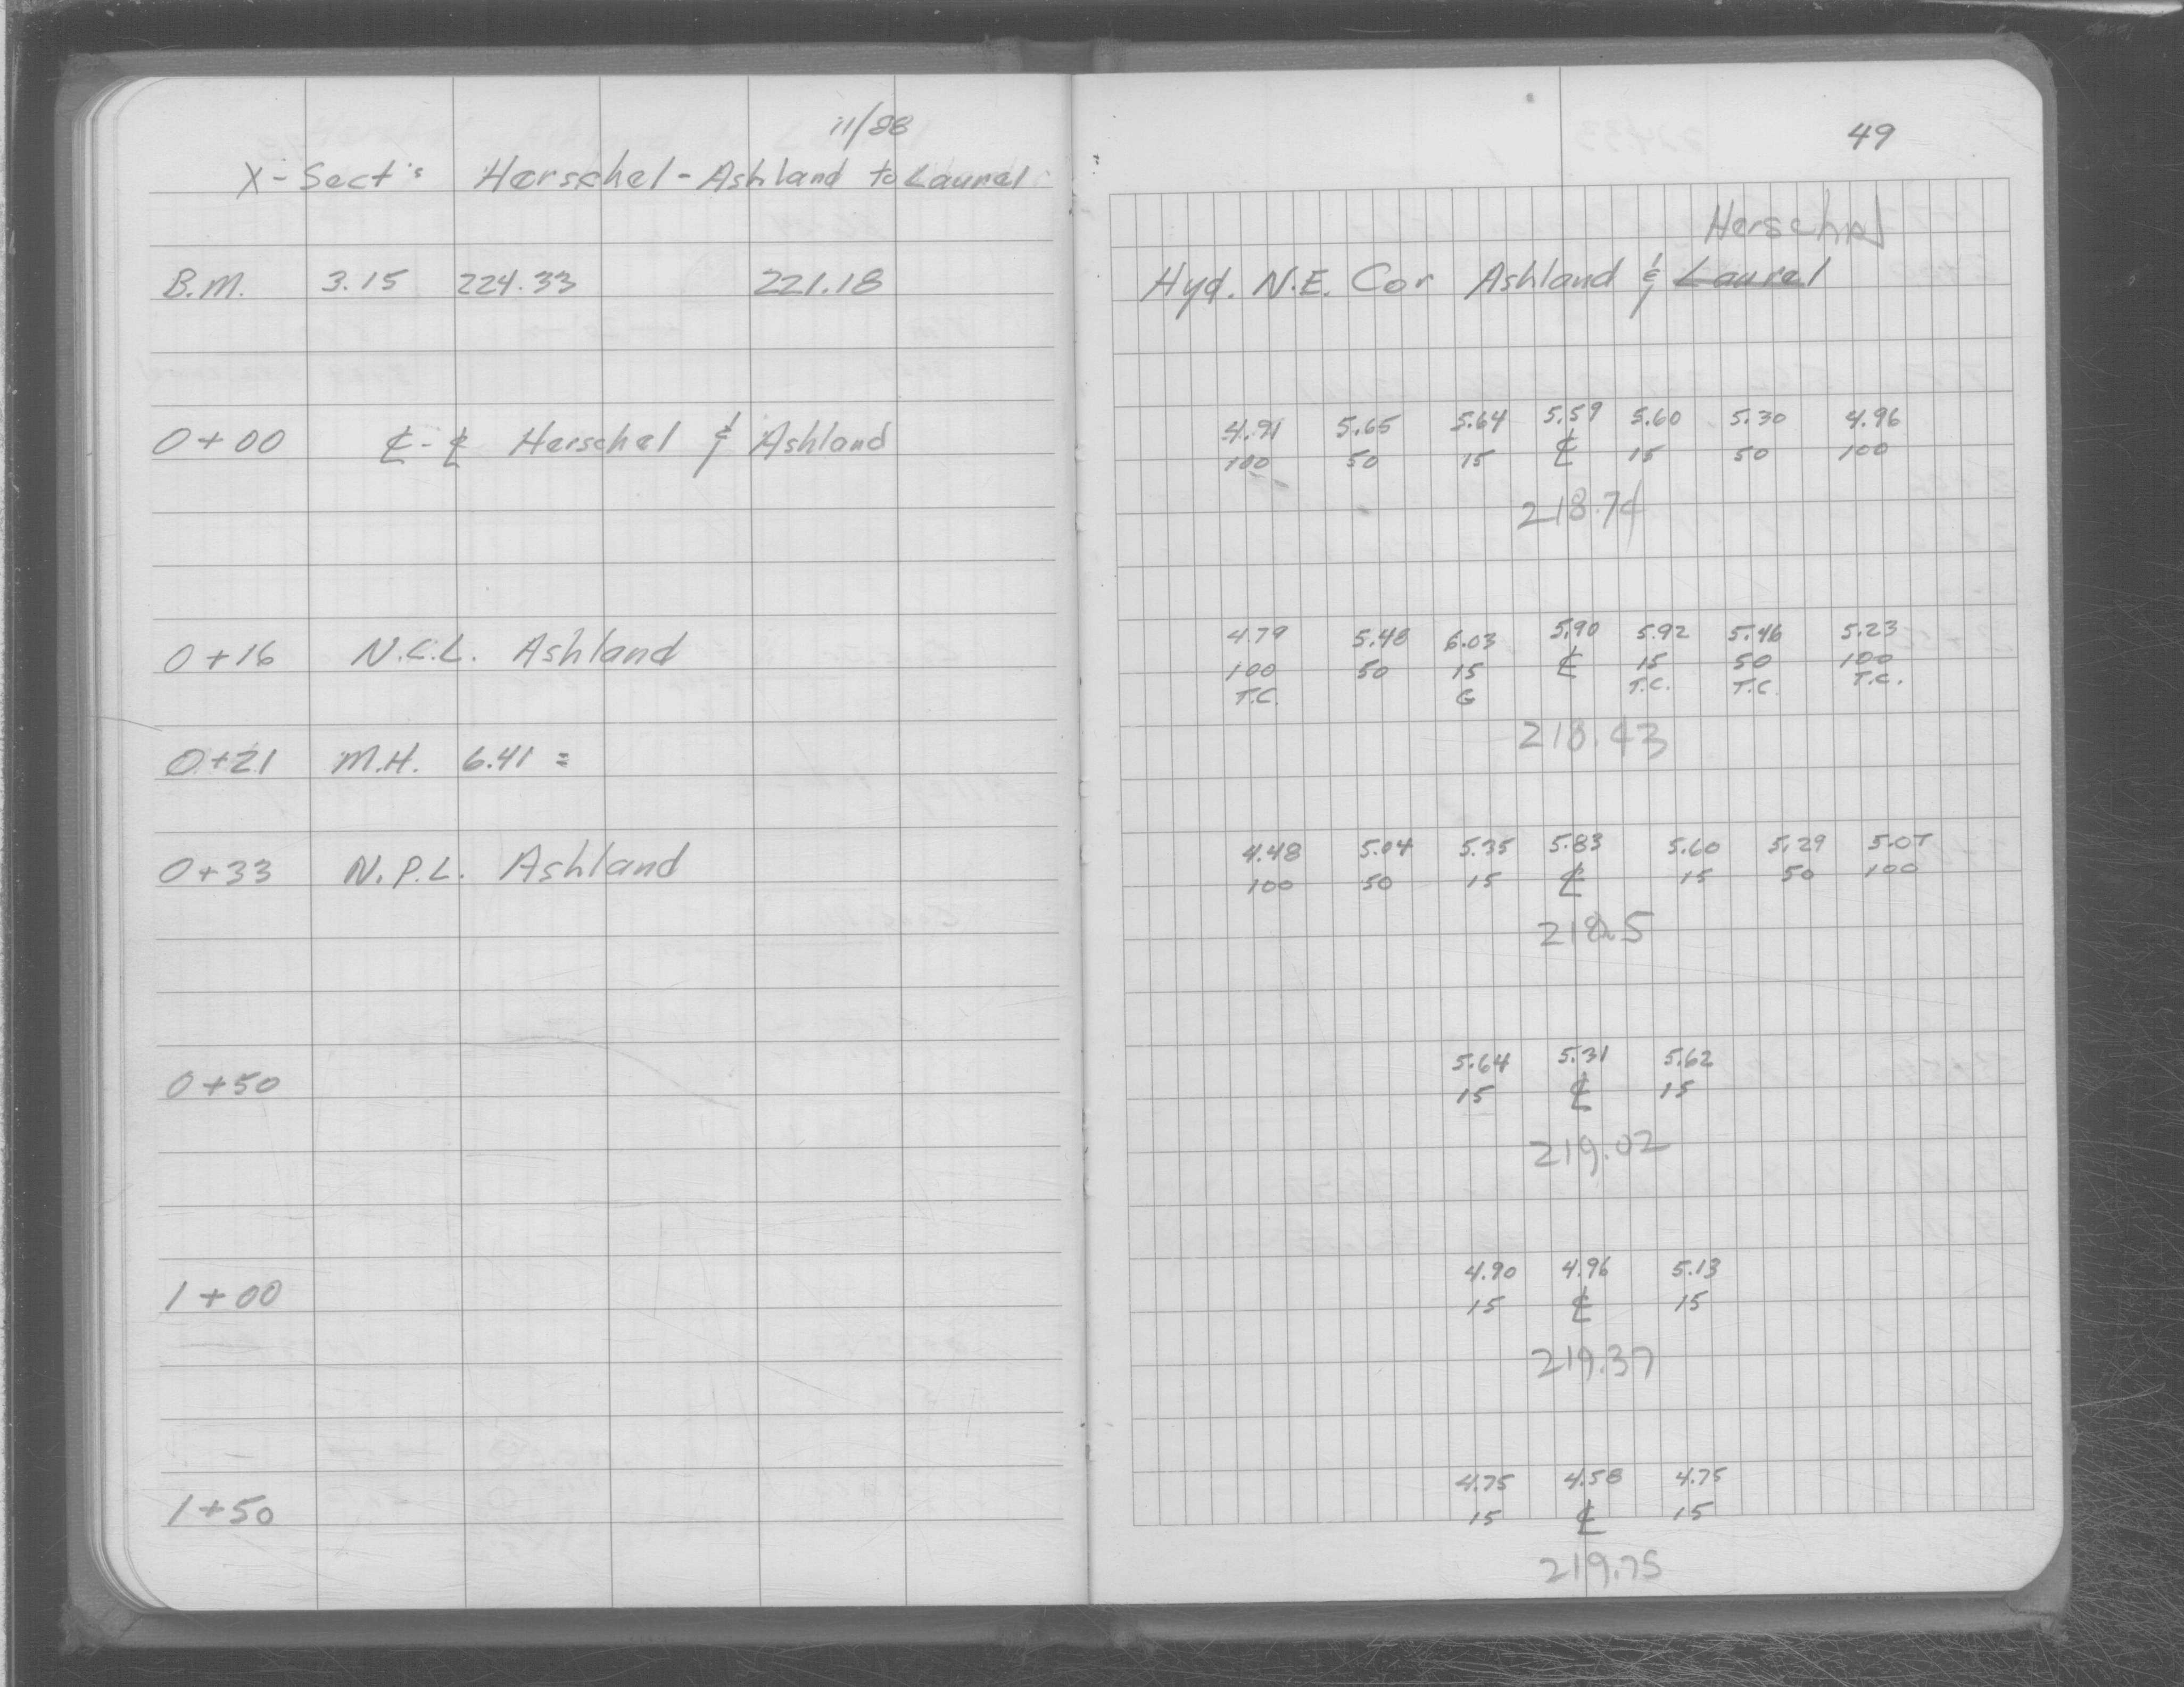 11/88
X-Sect's Herschel-Ashland to Laurel
B.M. 3.15 224.33 221.18
0+00 ℄-℄ Herschel & Ashland
0+16 N.C.L. Ashland
0+21 M.H. 6.41 =
0+33 N.P.L. Ashland
0+50
1+00
1+50
49
Herschel
Hyd. N.E. Cor Ashland & Laurel
4.91 5.65 5.64 5.59 5.60 5.30 4.96
100 50 15 ℄ 15 50 100
218.74
4.79 5.48 6.03 5.90 5.92 5.46 5.23
100 50 15 ℄ 15 50 100
T.C. G T.C. T.C. T.C.
218.43
4.48 5.04 5.35 5.83 5.60 5.29 5.07
100 50 15 ℄ 15 50 100
218.5
5.64 5.31 5.62
15 ℄ 15
219.02
4.90 4.96 5.13
15 ℄ 15
219.37
4.75 4.58 4.75
15 ℄ 15
219.75